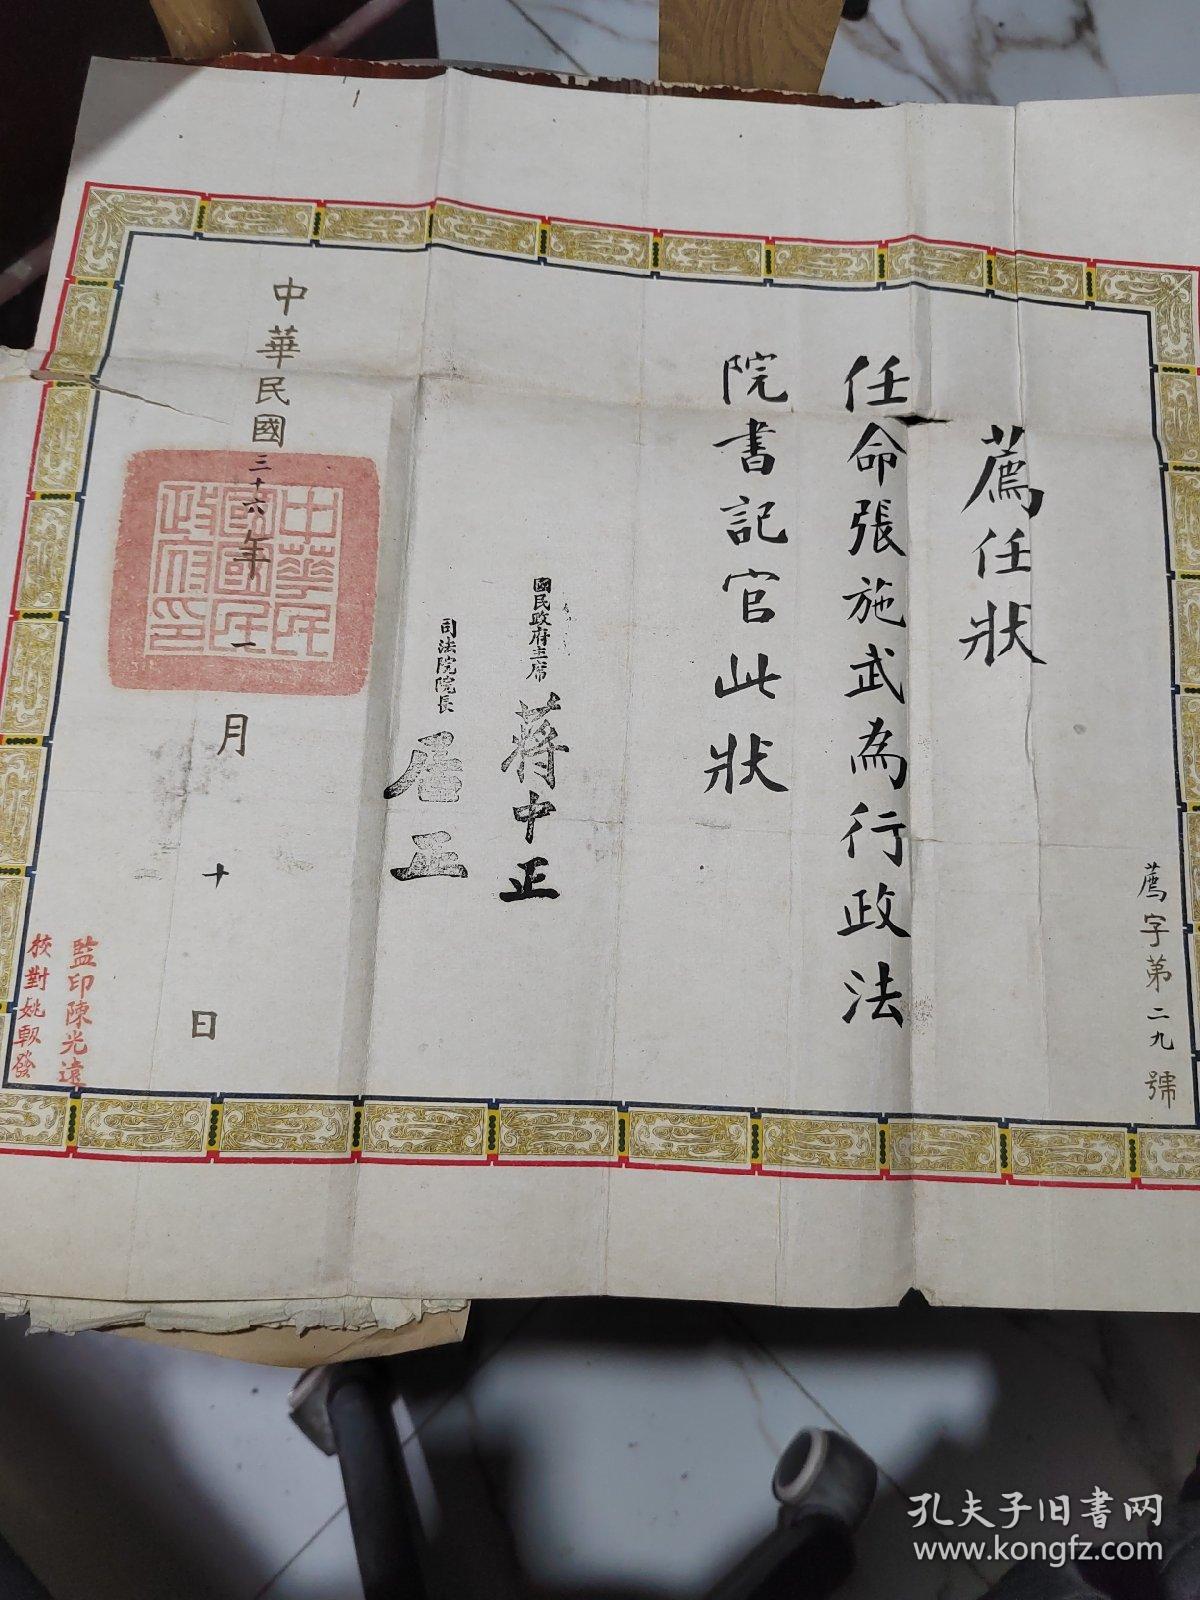 薦字第二九號
薦任狀
任命張施武為行政法
院書記官此狀
國民政府主席 蔣中正
司法院院長 居正
中華民國三十六年一月十日
中華民國國民政府印
監印陳光遠
校對姚軔發
孔夫子旧书网
www.kongfz.com